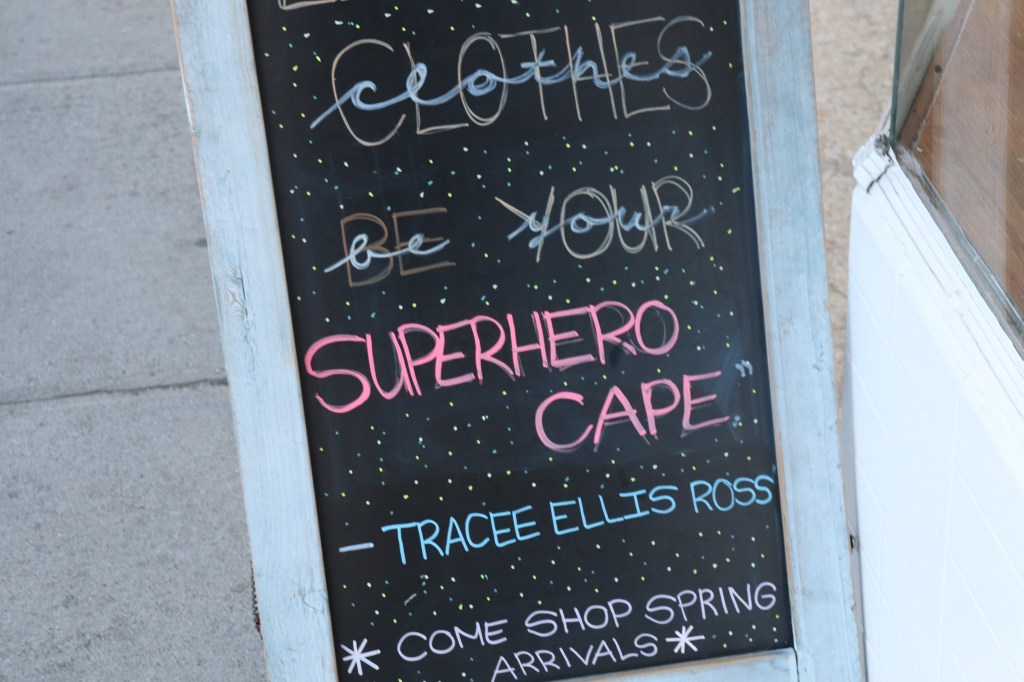 CLOTHES
clothes
BE YOUR
be your
SUPERHERO
CAPE"
— TRACEE ELLIS ROSS
* COME SHOP SPRING
ARRIVALS *